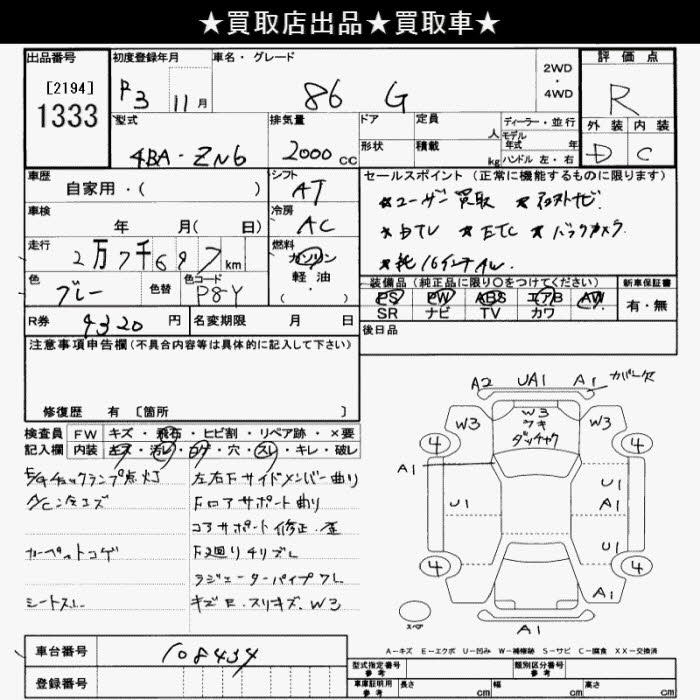 ★買取店出品★買取車★
出品番号
[2194]
1333
初度登録年月
R3 11月
車名・グレード
86 G
2WD
・
4WD
評価点
R
外装 内装
D C
型式
4BA-ZN6
排気量
2000cc
ドア
定員
人
形状
積載
kg
ディーラー・並行
モデル
年式 年
ハンドル 左・右
車歴
自家用・( )
シフト
AT
車検
年 月( 日)
冷房
AC
走行
2万7千697km
燃料
ガソリン
軽油
( ・ )
色
グレー
色替
色コード
P8Y
セールスポイント (正常に機能するものに限ります)
★ユーザー買取 ★社外ナビ
★DTV ★ETC ★バックカメラ
★純16インチAW
装備品(純正品に限り○をつけてください)
PS PW ABS エアB AW
SR ナビ TV カワ
新車保証書
有・無
後日品
R券 9320円
名変期限 月 日
注意事項申告欄(不具合内容等は具体的に記入して下さい)
修復歴 有 〔箇所 〕
検査員
記入欄
FW キズ・飛石・ヒビ割・リペア跡・×要
内装 キズ・汚レ・コゲ・穴・スレ・キレ・破レ
E/Gチェックランプ点灯
左右Fサイドメンバー曲り
Fロアサポート曲り
コアサポート修正・歪
カーペットコゲ
F廻りキリズレ
ラジエーターパイプズレ
シートスレ
A2 UA1 A1 カバー欠
W3 W3 W3
ワキ
ダッチャク
4 4
A1
U1 U1
A1
U1
4 4
A1
A1
スペア
A-キズ E-エクボ U-凹み W-補修跡 S-サビ C-腐食 XX-交換済
車台番号
108434
登録番号
型式指定番号
参考
類別区分番号
参考
車庫証明用
参考
長さ cm
幅 cm
高さ cm